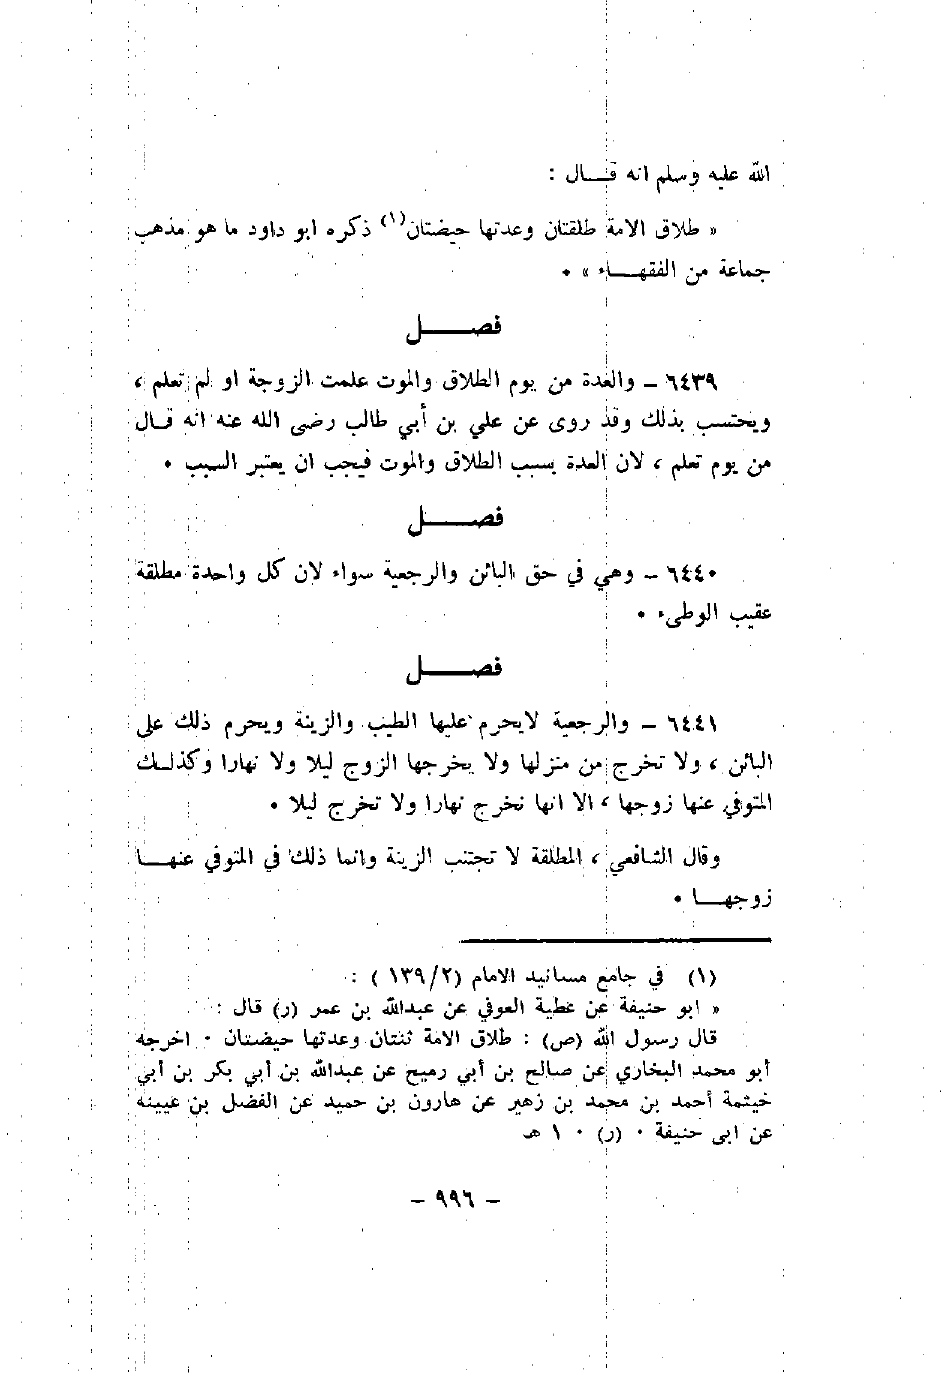 الله عليه وسلم انه قــال :
« طلاق الامة طلقتان وعدتها حيضتان(١) ذكره ابو داود ما هو مذهب
جماعة من الفقهــاء » ٠
فصــل
٦٤٣٩ – والعدة من يوم الطلاق والموت علمت الزوجة او لم تعلم ،
ويحتسب بذلك وقد روى عن علي بن أبي طالب رضى الله عنه انه قــال
من يوم تعلم ، لان العدة بسبب الطلاق والموت فيجب ان يعتبر السبب ٠
فصــل
٦٤٤٠ – وهي في حق البائن والرجعية سواء لان كل واحدة مطلقة
عقيب الوطىء ٠
فصــل
٦٤٤١ – والرجعية لايحرم عليها الطيب والزينة ويحرم ذلك على
البائن ، ولا تخرج من منزلها ولا يخرجها الزوج ليلا ولا نهارا وكذلــك
المتوفي عنها زوجها ، الا انها تخرج نهارا ولا تخرج ليلا ٠
وقال الشافعي ، المطلقة لا تجتنب الزينة وانما ذلك في المتوفي عنهــا
زوجهــا ٠
(١) في جامع مسانيد الامام (١٣٩/٢) :
« ابو حنيفة عن عطية العوفي عن عبدالله بن عمر (ر) قال :
قال رسول الله (ص) : طلاق الامة ثنتان وعدتها حيضتان ٠ اخرجه
أبو محمد البخاري عن صالح بن أبي رميح عن عبدالله بن أبي بكر بن أبي
خيثمة أحمد بن محمد بن زهير عن هارون بن حميد عن الفضل بن عيينه
عن ابى حنيفة ٠ (ر) ٠ ١ هـ
– ٩٩٦ –